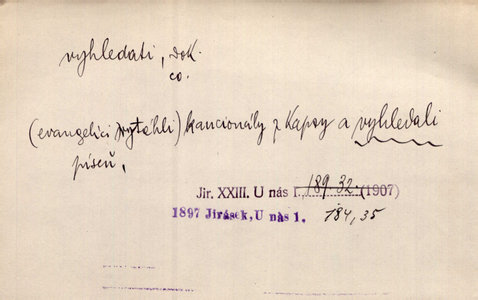 vyhledati, dok.
co.
(evangelíci vytáhli) kancionály z kapsy a vyhledali
píseň,
Jir. XXIII. U nás I. 189 32. (1907)
1897 Jirásek, U nás 1. 184, 35